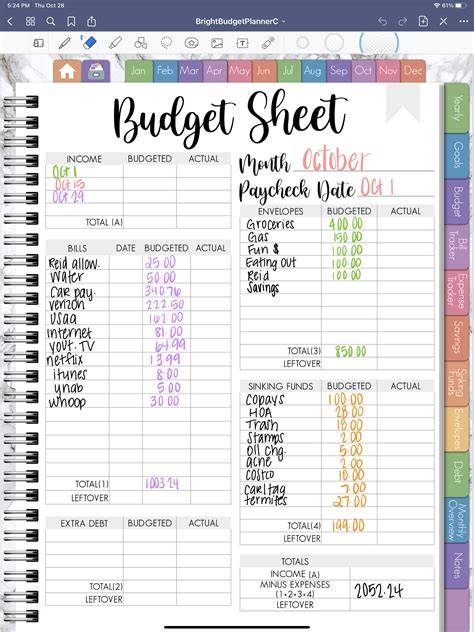 5:24 PM Thu Oct 28
61%
BrightBudgetPlannerC
Jan Feb Mar Apr May Jun Jul Aug Sep Oct Nov Dec
Budget Sheet
INCOME BUDGETED ACTUAL
Oct 1
Oct 15
Oct 29
TOTAL (A)
BILLS DATE BUDGETED ACTUAL
Reid allow. 25.00
Water 50.00
Car pay. 340.76
verizon 222.50
USAA 162.00
internet 81.00
yout. TV 64.99
netflix 13.99
itunes 8.00
ynab 5.00
whoop 30.00
TOTAL(1) 1003.24
LEFTOVER
EXTRA DEBT BUDGETED ACTUAL
TOTAL(2)
LEFTOVER
Month October
Paycheck Date Oct 1
ENVELOPES BUDGETED ACTUAL
Groceries 400.00
Gas 150.00
Fun $ 100.00
Eating Out 100.00
Reid 100.00
Savings
TOTAL(3) 850.00
LEFTOVER
SINKING FUNDS BUDGETED ACTUAL
copays 100.00
HOA 28.00
Trash 18.00
Stamps 2.00
oil chg. 5.00
acne 2.00
costco 10.00
car/tag 7.00
termites 27.00
TOTAL(4) 199.00
LEFTOVER
TOTALS
INCOME (A)
MINUS EXPENSES
(1+2+3+4) 2052.24
LEFTOVER
Yearly
Goals
Budget
Bill Tracker
Expense Tracker
Savings
Sinking Funds
Envelopes
Debt
Monthly Overview
Notes